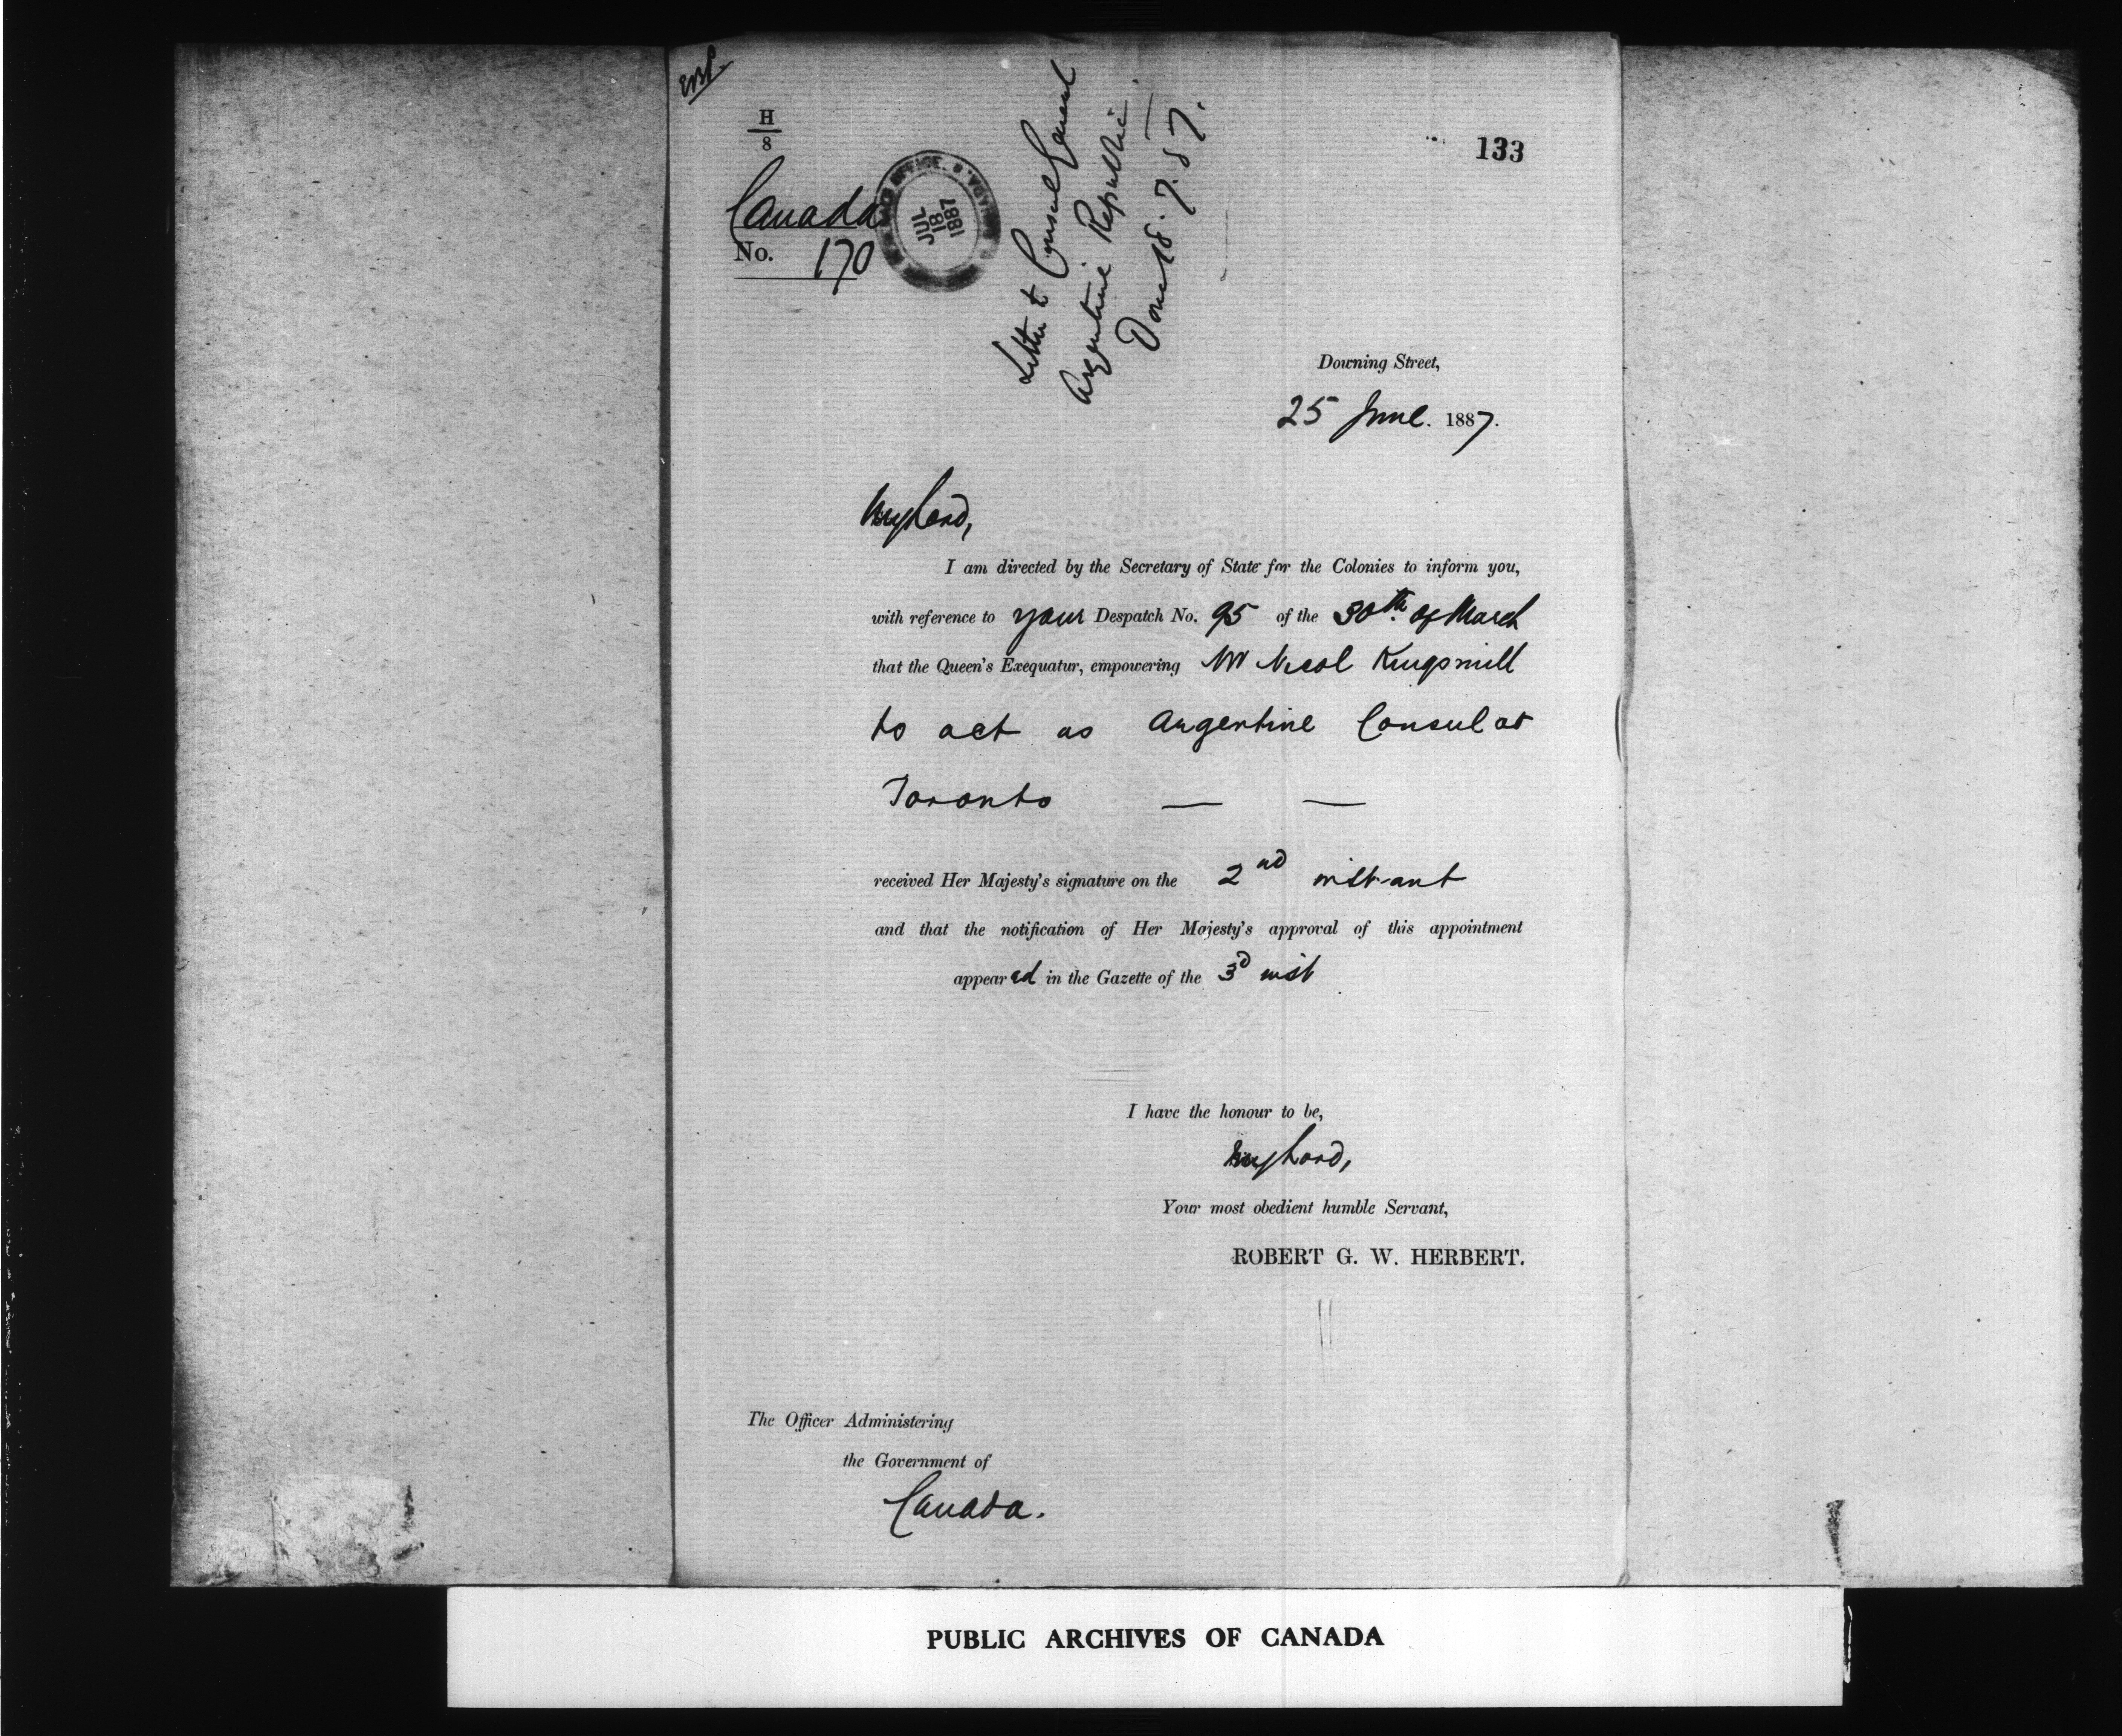 H
8
133
Canada
No. 170
JUL
18
1887
Letter to Consul General
Argentine Republic.
Done 18.7.87.
Downing Street,
25 June. 1887.
My Lord,
I am directed by the Secretary of State for the Colonies to inform you,
with reference to your Despatch No. 95 of the 30th. of March
that the Queen's Exequatur, empowering Mr Nicol Kingsmill
to act as Argentine Consul at
Toronto — —
received Her Majesty's signature on the 2nd instant
and that the notification of Her Majesty's approval of this appointment
appeared in the Gazette of the 3d inst
I have the honour to be,
My Lord,
Your most obedient humble Servant,
ROBERT G. W. HERBERT.
The Officer Administering
the Government of
Canada.
PUBLIC ARCHIVES OF CANADA